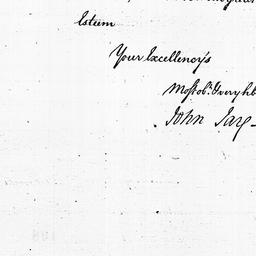 Esteem
Your Excellency's
Most ob.t & very hb
John Jay